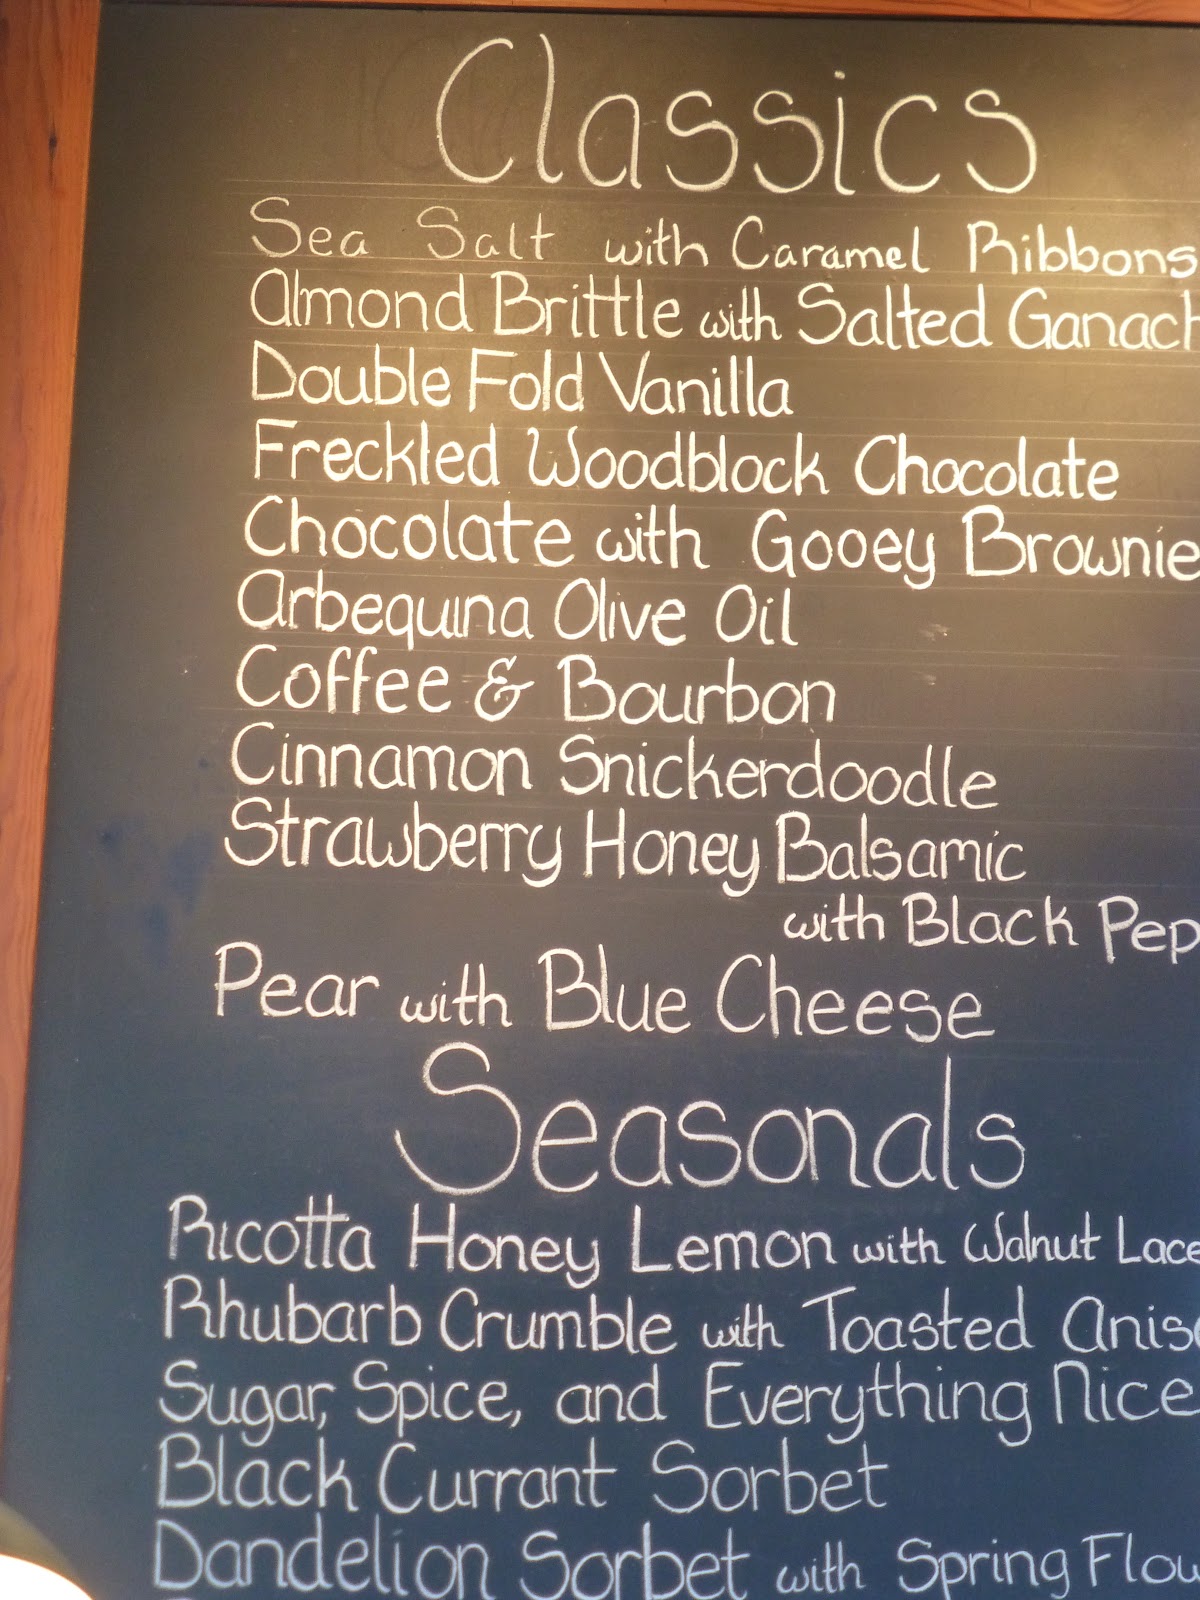 Classics
Sea Salt with Caramel Ribbons
Almond Brittle with Salted Ganach
Double Fold Vanilla
Freckled Woodblock Chocolate
Chocolate with Gooey Brownie
Arbequina Olive Oil
Coffee & Bourbon
Cinnamon Snickerdoodle
Strawberry Honey Balsamic
with Black Pep
Pear with Blue Cheese
Seasonals
Ricotta Honey Lemon with Walnut Lace
Rhubarb Crumble with Toasted Anise
Sugar, Spice, and Everything Nice
Black Currant Sorbet
Dandelion Sorbet with Spring Flow